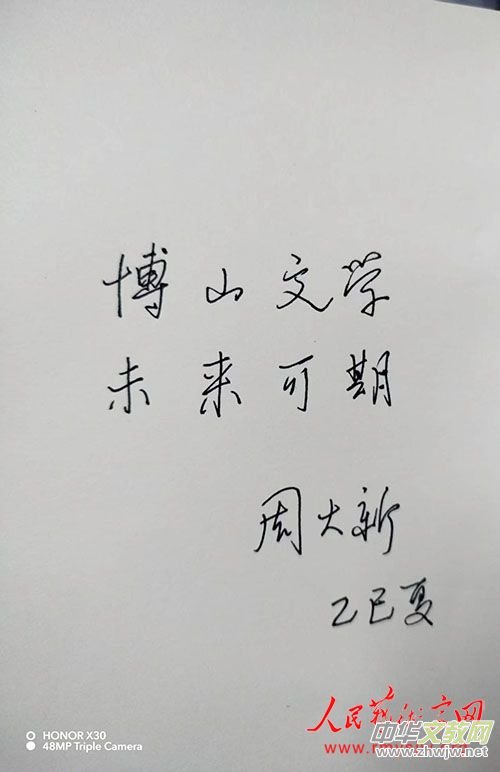 博山文学
未来可期
周大新
乙巳夏
HONOR X30
48MP Triple Camera
人民艺术家网
中华文教网
www.zhwjw.net